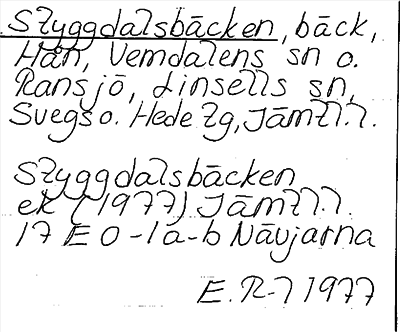 Styggdalsbäcken, bäck,
Hån, Vemdalens sn o.
Ransjö, Linsells sn,
Svegs o. Hede tg, Jämtl. l.
Styggdalsbäcken
ek (1977) Jämtl. l.
17 E 0-1 a-b Nävjarna
E. R-7 1977